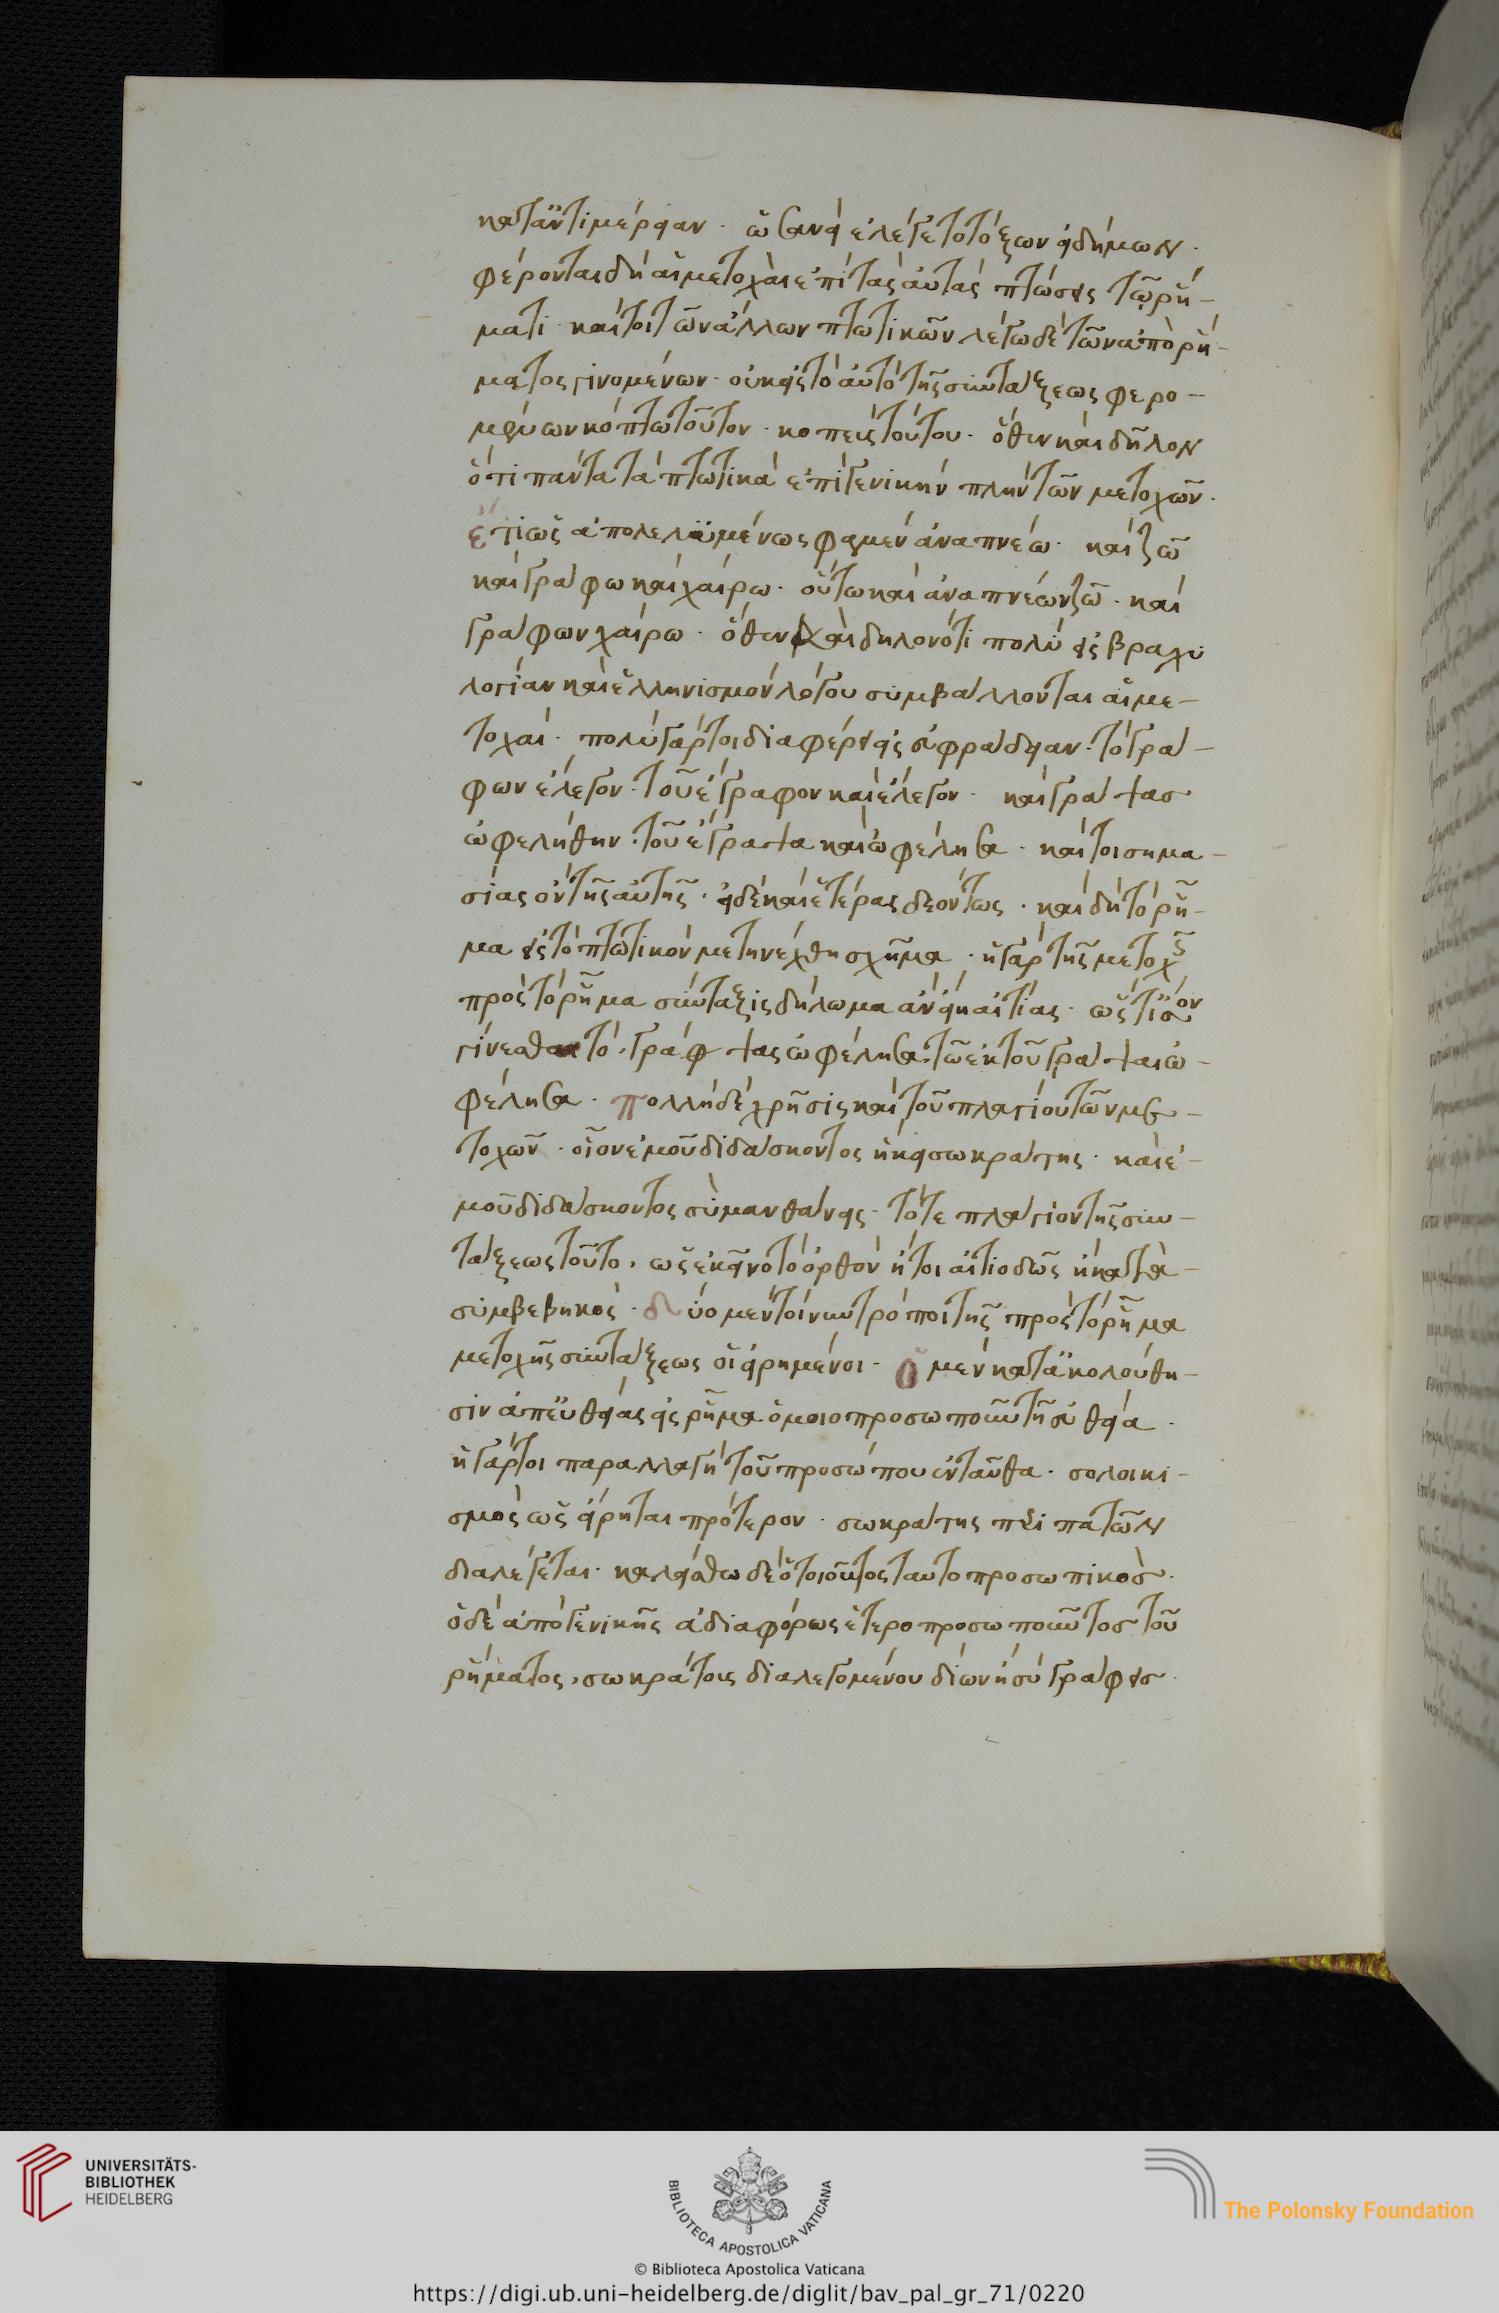 κατ' ἀντιμέρειαν. ὡσανεὶ ἐλέγετο τὸ ξων εἰδήμων.
φέρονται δὴ αἱ μετοχαὶ ἐπὶ τὰς αὐτὰς πτώσεις τῷ ῥή-
ματι. καίτοι τῶν ἄλλων πτωτικῶν λέγω δὲ τῶν ἀπὸ ῥή-
ματος γινομένων. οὐκ εἰς τὸ αὐτὸ τῆς συντάξεως φερο-
μένων κόπτω τοῦτον. κοπεὺς τούτου. ὅθεν καὶ δῆλον
ὅτι πάντα τὰ πτωτικὰ ἐπὶ γενικὴν πλὴν τῶν μετοχῶν.
ἔτι ὡς ἀπολελυμένως φαμὲν ἀναπνέω. καὶ ζῶ
καὶ γράφω καὶ χαίρω. οὕτω καὶ ἀναπνέων ζῶ. καὶ
γράφων χαίρω. ὅθεν καὶ δηλονότι πολὺ εἰς βραχυ
λογίαν καὶ ἑλληνισμὸν λόγου συμβάλλονται αἱ με-
τοχαί. πολὺ γάρ τοι διαφέρει εἰς εὐφράδειαν. τὸ γρά-
φων ἔλεγον. τοῦ ἔγραφον καὶ ἔλεγον. καὶ γράψας
ὠφελήθην. τοῦ ἔγραψα καὶ ὠφέλησα. καίτοι σημα-
σίας ὂν τῆς αὐτῆς. εἰ δὲ καὶ ἑτέρας δεόντως. καὶ δὴ τὸ ῥῆ-
μα εἰς τὸ πτωτικὸν μετηνέχθη σχῆμα. ἡ γὰρ τῆς μετοχῆς
πρὸς τὸ ῥῆμα σύνταξις δήλωμα ἂν εἴη αἰτίας. ὥς τισιν
γίνεσθαι τὸ γράψας ὠφέλησα. τῷ ἐκ τοῦ γράψαι ὠ-
φέλησα. πολλὴ δὲ χρῆσις καὶ τοῦ πλαγίου τῶν με-
τοχῶν. οἷον ἐμοῦ διδάσκοντος ἥκει σωκράτης. καὶ ἐ-
μοῦ διδάσκοντος σὺ μανθάνεις. τό τε πλάγιον τῆς συν-
τάξεως τοῦτο, ὡς ἐκεῖνο τὸ ὀρθὸν ἤτοι αἰτιωδῶς ἢ κατὰ
συμβεβηκός. δύο μὲν τοίνυν τρόποι τῆς πρὸς τὸ ῥῆμα
μετοχῆς συντάξεως οἱ εἰρημένοι. ὁ μὲν κατ' ἀκολούθη-
σιν ἀπ' εὐθείας εἰς ῥῆμα ὁμοιοπροσωποῦν τῇ εὐθείᾳ.
ἡ γάρ τοι παραλλαγὴ τοῦ προσώπου ἐνταῦθα. σολοικι-
σμὸς ὡς εἴρηται πρότερον. σωκράτης περιπατῶν
διαλέγεται. καλείσθω δὲ ὁ τοιοῦτος ταυτοπροσωπικός.
ὁ δὲ ἀπὸ γενικῆς ἀδιαφόρως ἑτεροπροσωποῦντος τοῦ
ῥήματος, σωκράτους διαλεγομένου δίων ἢ σὺ γράφεις.
UNIVERSITÄTS-
BIBLIOTHEK
HEIDELBERG
BIBLIOTECA APOSTOLICA VATICANA
The Polonsky Foundation
© Biblioteca Apostolica Vaticana
https://digi.ub.uni-heidelberg.de/diglit/bav_pal_gr_71/0220